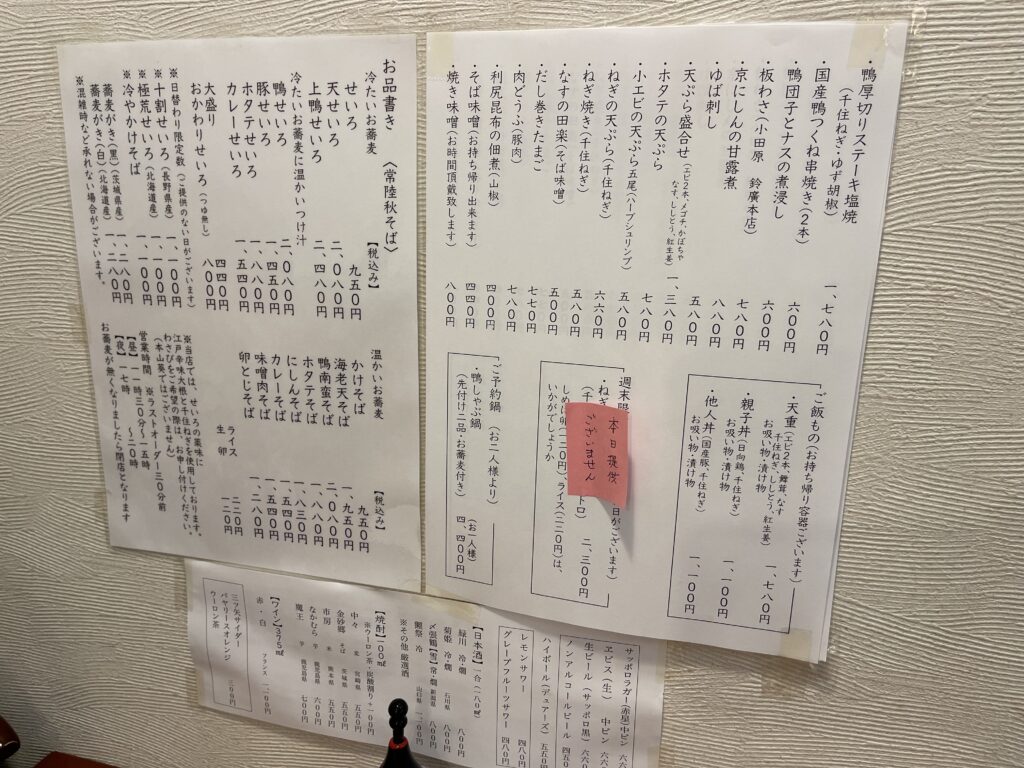 ・鴨厚切りステーキ塩焼
(千住ねぎ・ゆず胡椒) 一、七八〇円
・国産鴨つくね串焼き(2本) 六〇〇円
・鴨団子とナスの煮浸し 六〇〇円
・板わさ(小田原 鈴廣本店) 七八〇円
・京にしんの甘露煮 八八〇円
・ゆば刺し 五八〇円
・天ぷら盛合せ(エビ2本、メゴチ、かぼちゃ
なす、ししとう、紅生姜) 一、三八〇円
・ホタテの天ぷら 七八〇円
・小エビの天ぷら五尾(ハーブシュリンプ) 五八〇円
・ねぎの天ぷら(千住ねぎ) 六六〇円
・ねぎ焼き(千住ねぎ) 五八〇円
・なすの田楽(そば味噌) 五〇〇円
・だし巻きたまご 七七〇円
・肉どうふ(豚肉) 七八〇円
・利尻昆布の佃煮(山椒) 四〇〇円
・そば味噌(お持ち帰り出来ます) 四四〇円
・焼き味噌(お時間頂戴致します) 八〇〇円
ご飯もの(お持ち帰り容器ございます)
・天重(エビ2本、舞茸、なす
千住ねぎ、ししとう、紅生姜)
お吸い物・漬け物 一、七八〇円
・親子丼(日向鶏、千住ねぎ)
お吸い物・漬け物 一、一〇〇円
・他人丼(国産豚、千住ねぎ)
お吸い物・漬け物 一、一〇〇円
週末限
日がございます)
・ねぎ
トロ) 二、三〇〇円
(千
しめに卵(一二〇円)、ライス(二二〇円)は、
いかがでしょうか
本日
ございません
ご予約鍋 (お二人様より)
・鴨しゃぶ鍋 (お一人様)
(先付け一品・お蕎麦付き) 四、四〇〇円
お品書き 〈常陸秋そば〉
冷たいお蕎麦 【税込み】
せいろ 九五〇円
天せいろ 二、〇八〇円
上鴨せいろ 二、四八〇円
冷たいお蕎麦に温かいつけ汁
鴨せいろ 二、〇八〇円
豚せいろ 一、四五〇円
ホタテせいろ 一、八八〇円
カレーせいろ 一、五四〇円
大盛り 四四〇円
おかわりせいろ(つゆ無し) 八〇〇円
※日替わり限定数(ご提供のない日がございます)
※十割せいろ(長野県産) 一、一〇〇円
※極荒せいろ(北海道産) 一、一〇〇円
※冷やかけそば 一、一〇〇円
蕎麦がき(黒)(茨城県産) 一、一八〇円
蕎麦がき(白)(北海道産) 一、二八〇円
※混雑時など承れない場合がございます。
温かいお蕎麦 【税込み】
かけそば 九五〇円
海老天そば 一、九五〇円
鴨南蛮そば 二、〇八〇円
ホタテそば 一、八八〇円
にしんそば 一、八三〇円
カレーそば 一、五四〇円
味噌肉そば 一、五四〇円
卵とじそば 一、二八〇円
ライス 二二〇円
生卵 一二〇円
※当店では、せいろの薬味に
江戸辛味大根と千住ねぎを使用しております。
わさびをご希望の際は、お申し付けください。
(本山葵ではございません)
営業時間 ※ラストオーダー三〇分前
【昼】一一時三〇分~一五時
【夜】一七時 ~二〇時
お蕎麦が無くなりましたら閉店となります
サッポロラガー(赤星)中ビン
ヱビス(生) 中ビン
生ビール(サッポロ黒)
ノンアルコールビール 四五
ハイボール(デュアーズ) 五五〇
レモンサワー 四八〇円
グレープフルーツサワー 四八〇円
【日本酒】一合(一八〇㎖)
緑川 冷・燗 八〇〇円
菊姫 冷・燗 石川県 八〇〇円
〆張鶴【雪】常・燗 新潟県 八〇〇円
獺祭 冷 山口県 一二〇〇円
※その他 厳選酒
【焼酎】100㎖
※ウーロン茶・炭酸割り+一〇〇円
中々 麦 宮崎県 五五〇円
金砂郷 そば 茨城県 五五〇円
市房 米 熊本県 五五〇円
なかむら 芋 鹿児島県 六〇〇円
魔王 芋 鹿児島県 七〇〇円
【ワイン】375㎖
赤・白 フランス 一一〇〇円
三ツ矢サイダー
バヤリースオレンジ
ウーロン茶 三〇〇円